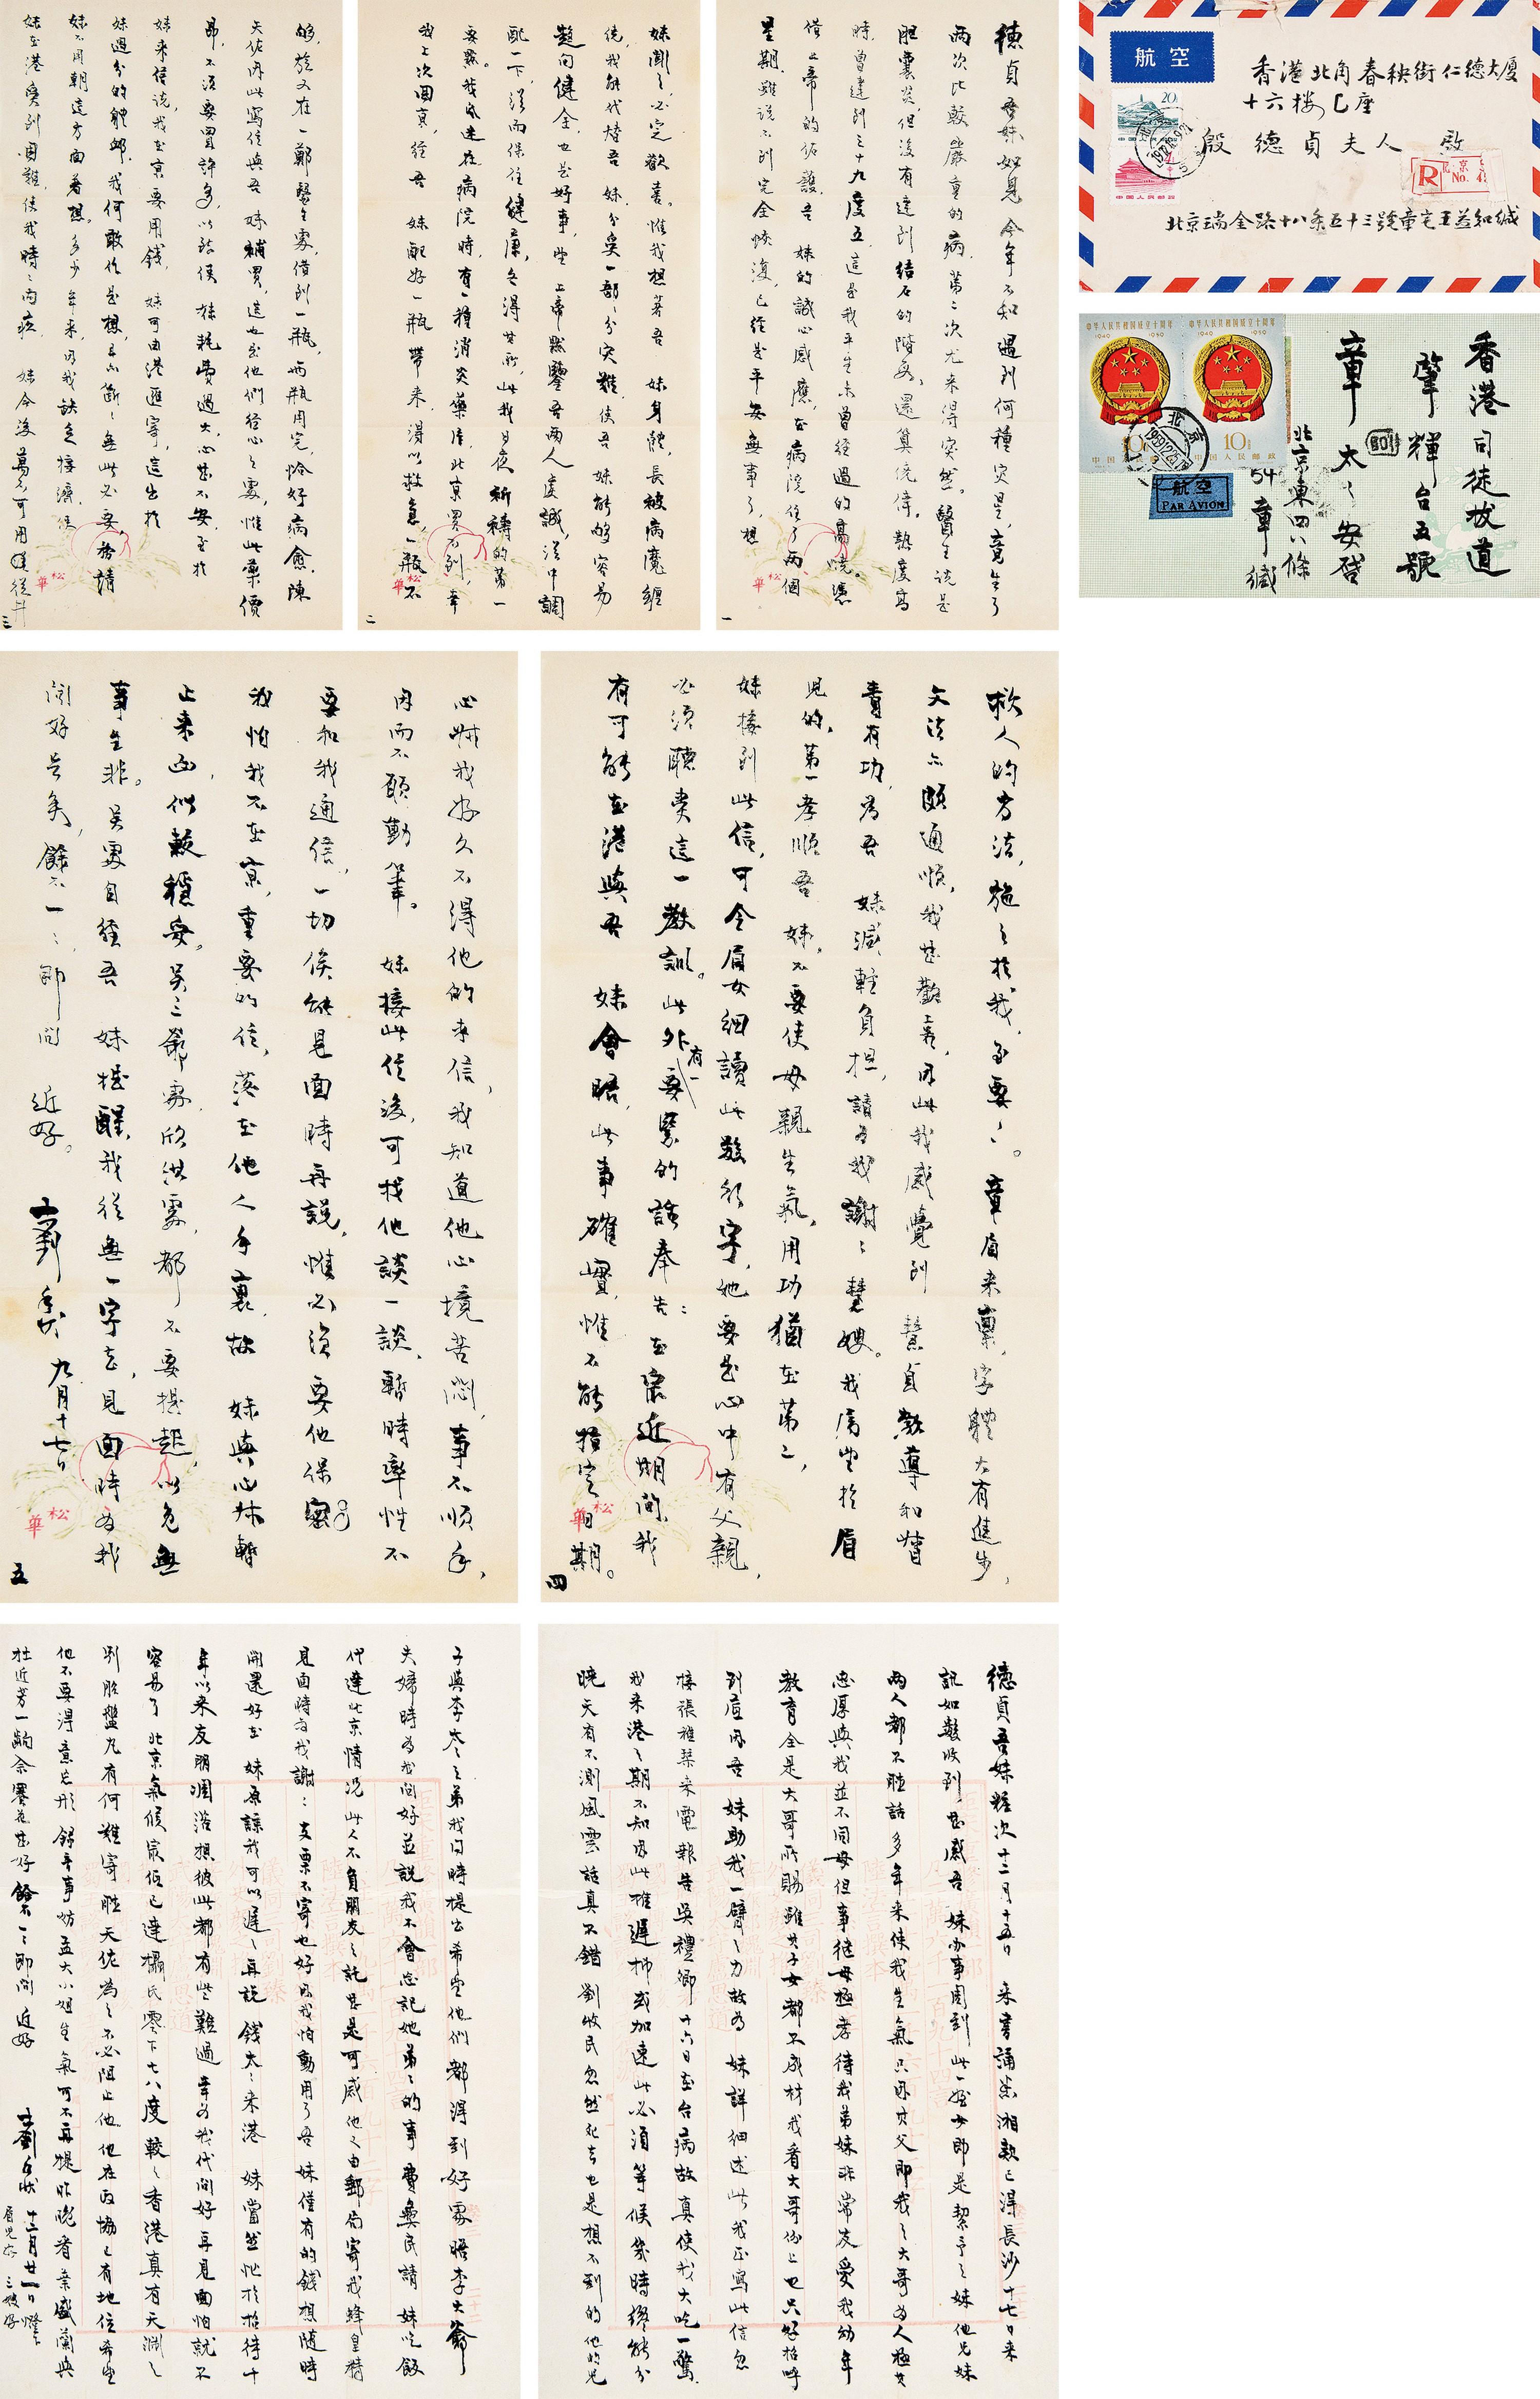 德貞吾妹如見今年不知遇到何種災星,竟生了
兩次比較嚴重的病,第二次尤來得突然,醫生說是
胆囊炎,但沒有達到結石的階段,還算僥倖,熱度高
時,曾達到三十九度五,這是我平生未曾經過的高燒。憑
借上帝的佑護,吾 妹的誠心感應,在病院住了兩個
星期,雖說不到完全恢復,已經是平安無事了,想
一
妹聞之必定歡喜。惟我想著吾 妹身體,長被病魔纏
繞,我能代替吾 妹分矣一部分災難,使吾 妹能夠容易
趨向健全,也是好事,望 上帝默鑒吾兩人虔誠,從中調
配一下,從而保住健康,各得其所,此我日夜祈禱的第一
要點。我因速在病院時,有一種消炎藥片,北京買不到,幸
我上次回京,經吾 妹配好一瓶帶來,得以救急,一瓶不
二
夠,於又在一鄭醫生處,借到一瓶,兩瓶用完,恰好病愈,陳
天佐内此寫信與吾 妹補買,這也是他們經心之處,惟此藥價
昂,不須要買許多,以致使 妹耗費過大,心甚不安,至於
妹來信說,我在京要用錢, 妹可由港匯寄,這出於
妹過分的體卹,我何敢作是想,亦不斷斷無此必要,務請
妹不用朝這方面着想,多少年來,因我缺乏接濟,使
妹在港受到困難,使我時時內疚, 妹今後萬不可用從井
三
救人的方法,施之於我,至要至要。章眉來稟,字體大有進步,
文法亦頗通順,我甚歡喜,因此我感覺到 慧貞教導和督
責有功,為吾 妹減輕負担,請為我謝謝慧嫂。我屬望於眉
兒的,第一孝順吾 妹,不要使母親生氣,用功猶在第二,
妹接到此信,可令眉女細讀此數行字,她要是心中有父親,
必須聽爽這一教訓。此外有一要緊的話奉告:在最近期間,我
有可能在港與吾 妹會晤,此事確實,惟不能預定日期。
四
心姊我好久不得他的來信,我知道他心境苦悶,事不順手,
因而不願動筆。 妹接此信後,可找他談一談,暫時率性不
要和我通信,一切俟能見面時再說,惟必須要他保密。
我怕我不在京,重要的信,落在他人手裏,故 妹與心姊暫
止來函,似較穩妥。吳三爺處,欣洪處,都不要提起,以免無
事生非。吳處自經吾 妹提醒,我從無一字去,見面時為我
問好足矣,餘不一一,即問 近好。
士釗手啟 九月十七日
五
香港北角春秧街仁德大厦
十六樓已座
殷德貞夫人 啟
北京瑞金路十八条五十三號章宅王益知緘
航空
20
中国人民邮政
R
No. 4
香港司徒拔道
肇輝台五號
章太太安啓
北京東四八條
54 章緘
航空
PAR AVION
中华人民共和国成立十周年
1949 1959
中华人民共和国成立十周年
1949 1959
10分
中国人民邮政
10分
中国人民邮政
北京
松華
德貞吾妹粧次十二月十五日 來書誦悉湘款已得長沙十七日來
訊如數收到甚感吾 妹办事周到此一婦女即是絜予之妹他兄妹
兩人都不聽話多年來使我生氣只因其父即我之大哥為人極其
忠厚與我並不同母但事继母極孝待我弟妹非常友愛我幼年
教育全是大哥所賜雖其子女都不成材我看大哥份上也只好招呼
到底因吾 妹助我一臂之力故為 妹詳细述此我正寫此信忽
接張雅琴來電報告吳禮卿十六日在台病故真使我大吃一驚
我來港之期不知因此推遲抑或加速此必須等候幾時纔能分
曉天有不測風雲話真不錯劉攸民忽然死去也是想不到的他的兄
子與李太太之弟我同時提出希望他們都得到好處晤李大爺
夫婦時為我問好並說我不會忘記她弟弟的事費彝民請 妹吃飯
代達北京情况此人不負朋友之託甚是可感他又由郵局寄我蜂皇精
見面時為我謝謝支票不寄也好因我怕動用了吾 妹僅有的錢想随時
開還好在 妹原諒我可以遲遲再說錢太太來港 妹當然忙於招待十
年以來友朋凋落想彼此都有些難過幸為我代問好再見面怕就不
容易了北京氣候最低已達攝氏零下七八度較之香港真有天淵之
别脏盤九有何難寄聽天佐為之不必阻止他他在政協已有地位希望
他不要得意忘形錦章事妨孟大小姐生氣可不再提昨晚看葉盛蘭與
杜近芳一齣佘賽花甚好餘不一一即問 近好
士釗手啟 十二月廿一日燈下
眉兒好 三嫂好